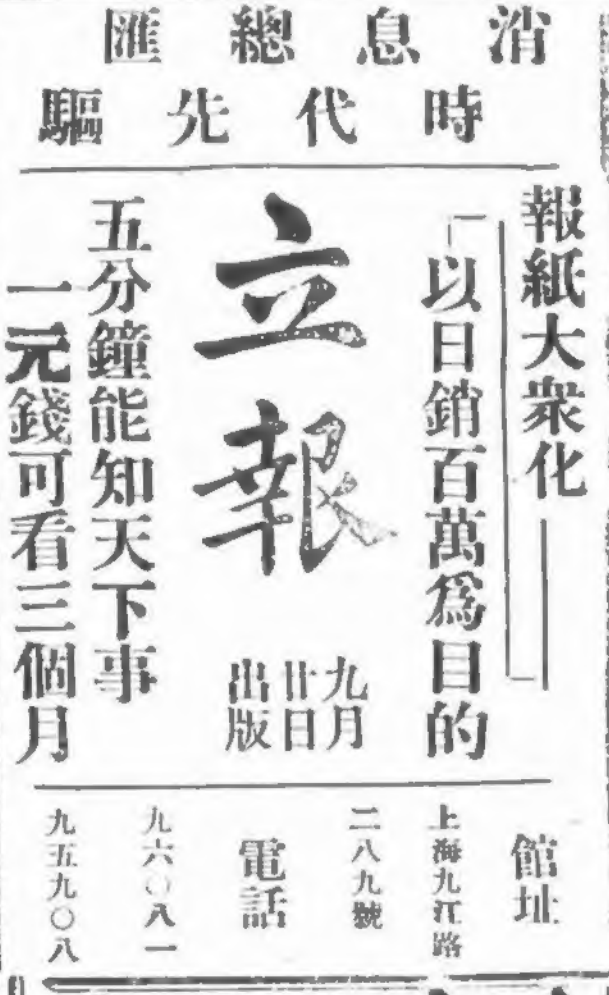 消息總匯
時代先驅
報紙大衆化
以日銷百萬爲目的
立報
九月
廿日
出版
五分鐘能知天下事
一元錢可看三個月
館址
上海九江路
二八九號
電話
九六〇八一
九五九〇八